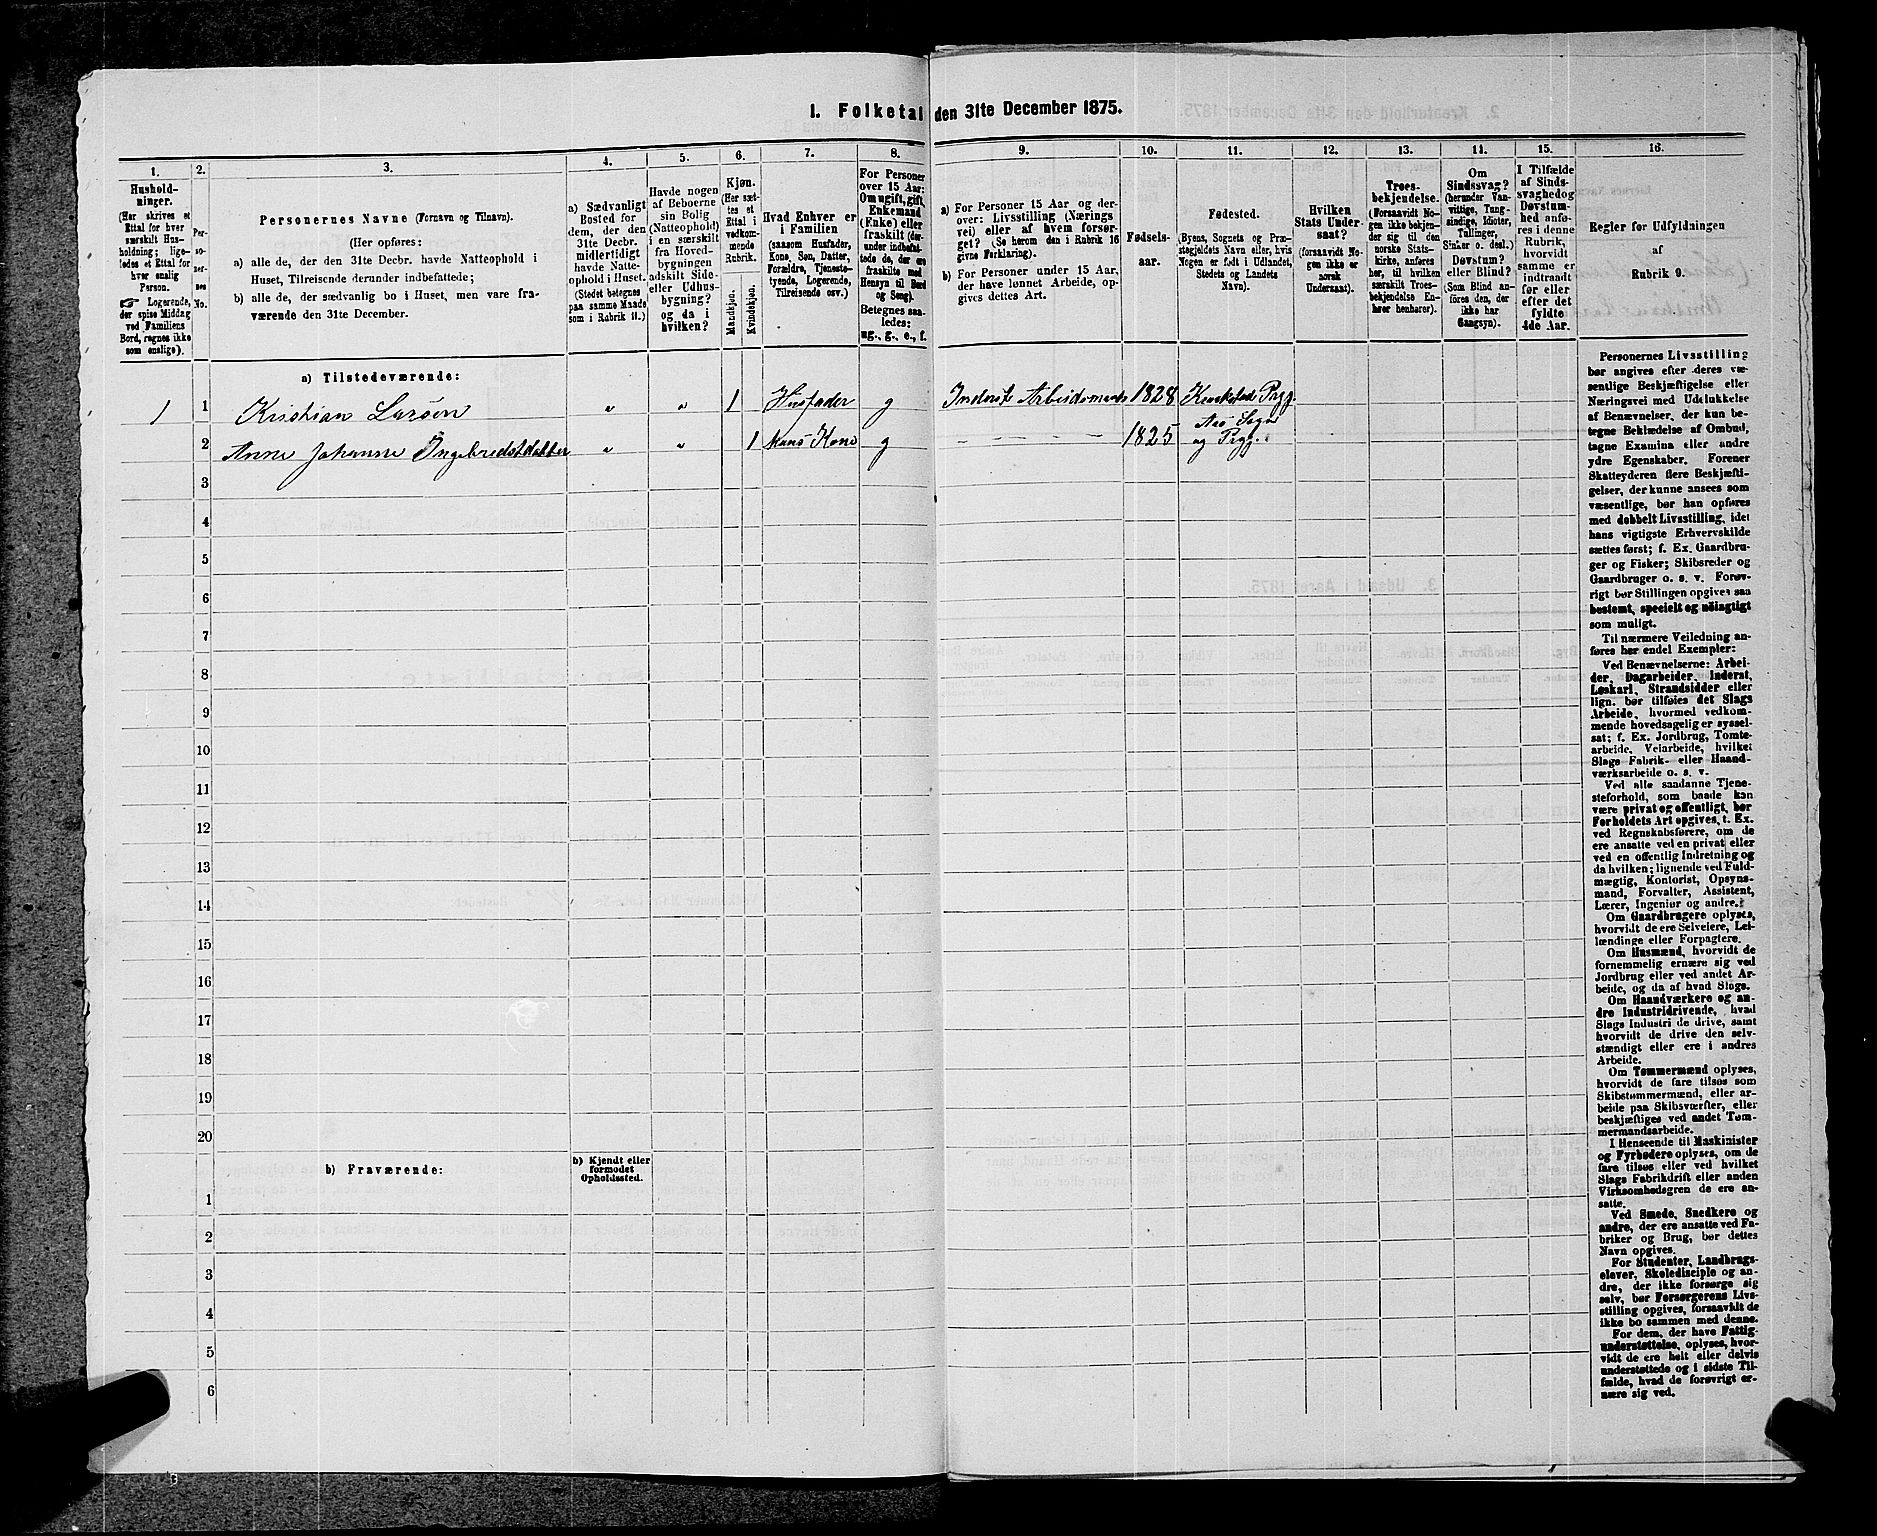 1. Folketal den 31te December 1875.
1.
2.
3.
4.
5.
6.
7.
8.
9.
10.
11.
12.
13.
14.
15.
16.
Hushold-
ninger.
(Her skrives et
Ettal for hver
særskilt Hus-
holdning; lige-
ledes et Ettal for
hver enslig
Person.
☞ Logerende,
der spise Middag
ved Familiens
Bord, regnes ikke
som enslige).
Per-
so-
ner-
nes
No.
Personernes Navne (Fornavn og Tilnavn).
(Her opføres:
a) alle de, der den 31te Decbr. havde Natteophold i
Huset, Tilreisende derunder indbefattede;
b) alle de, der sædvanlig bo i Huset, men vare fra-
værende den 31te December.
a) Sædvanligt
Bosted for
dem, der den
31te Decbr.
midlertidigt
havde Natte-
ophold i Huset.
(Stedet betegnes
paa samme Maade
som i Rubrik 11.)
Havde nogen
af Beboerne
sin Bolig
(Natteophold)
i en særskilt
fra Hoved-
bygningen
adskilt Side-
eller Udhus-
bygning?
og da i
hvilken?
Kjøn.
(Her sæt-
tes et
Ettal i
vedkom-
mende
Rubrik.
Mandkjøn.
Kvindekjøn.
Hvad Enhver er
i Familien
(saasom Husfader,
Kone, Søn, Datter,
Forældre, Tjeneste-
tyende, Logerende,
Tilreisende osv.)
For Personer
over 15 Aar:
Om ugift, gift,
Enkemand
(Enke) eller
fraskilt (der-
under indbefat-
tede de, der ere
fraskilte med
Hensyn til Bord
og Seng).
Betegnes saa-
ledes:
ug., g., e., f.
a) For Personer 15 Aar og der-
over: Livsstilling (Nærings
vei) eller af hvem forsør-
get? (Se herom den i Rubrik 16
givne Forklaring).
b) For Personer under 15 Aar,
der have lønnet Arbeide, op-
gives dettes Art.
Fødsels-
aar.
Fødested.
(Byens, Sognets og Præ-
stegjeldets Navn eller, hvis
Nogen er født i Udlandet,
Stedets og Landets
Navn).
Hvilken
Stats Under-
saat?
(forsaavidt No-
gen ikke er
norsk
Undersaat).
Troes-
bekjendelse.
(Forsaavidt No-
gen ikke bekjen-
der sig til den
norske Stats-
kirke, anføres
her, til hvilken
særskilt Troes-
bekjendelse En-
hver henhører).
Om
Sindssvag?
(herunder Van-
vittige, Tung-
sindige, Idioter,
Tullinger,
Sinker o. desl.)
Døvstum?
eller Blind?
(Som Blind an-
føres den, der
ikke har
Gangsyn).
I Tilfælde
af Sinds-
svaghed og
Døvstum-
hed anfø-
res i denne
Rubrik,
hvorvidt
samme er
indtraadt
før eller
efter det
fyldte
4de Aar.
Regler for Udfyldningen
af
Rubrik 9.
a) Tilstedeværende:
1 1 Kristian Larsen " " 1 Husfader g Inderst Arbeidsmand 1828 Krakstad Prgj.
2 Anne Johanne Ingebretsdatter " " 1 Hans Kone g - - - - - 1825 Aas Sogn
og Prgj.
3
4
5
6
7
8
9
10
11
12
13
14
15
16
17
18
19
20
b) Fraværende:
b) Kjendt eller
formodet
Opholdssted.
1
2
3
4
5
6
Personernes Livsstilling
bør angives efter deres væ-
sentlige Beskjæftigelse eller
Næringsvei med Udelukkelse
af Benævnelser, der kun be-
tegne Beklædelse af Ombud,
tagne Examina eller andre
ydre Egenskaber. Forener
Skatteyderen flere Beskjæfti-
gelser, der kunne ansees som
væsentlige, bør han opføres
med dobbelt Livsstilling, idet
hans vigtigste Erhvervskilde
sættes først; f. Ex. Gaardbru-
ger og Fisker; Skibsreder og
Gaardbruger o. s. v. Forøv-
rigt bør Stillingen opgives saa
bestemt, specielt og nöiagtigt
som muligt.
Til nærmere Veiledning an-
føres her endel Exempler:
Ved Benævnelserne: Arbei-
der, Dagarbeider, Inderst,
Løskarl, Strandsidder eller
lign. bør tilføies det Slags
Arbeide, hvormed vedkom-
mende hovedsagelig er syssel-
sat; f. Ex. Jordbrug, Tomte-
arbeide, Veiarbeide, hvilket
Slags Fabrik- eller Haand-
værksarbeide o. s. v.
Ved alle saadanne Tjene-
steforhold, som baade kan
være privat og offentligt, bør
Forholdets Art opgives, t. Ex.
ved Regnskabsførere, om de
ere ansatte ved en privat eller
ved en offentlig Indretning og
da hvilken; lignende ved Fuld-
mægtig, Kontorist, Opsyns-
mand, Forvalter, Assistent,
Lærer, Ingeniør og andre.
Om Gaardbrugere oplyses,
hvorvidt de ere Selveiere, Lei-
lændinge eller Forpagtere.
Om Husmænd, hvorvidt de
fornemmelig ernære sig ved
Jordbrug eller ved andet Ar-
beide, og da af hvad Slags.
Om Haandværkere og an-
dre Industridrivende, hvad
Slags Industri de drive, samt
hvorvidt de drive den selv-
stændigt eller ere i andres
Arbeide.
Om Tømmermænd oplyses,
hvorvidt de fare tilsøs som
Skibstømmermænd, eller ar-
beide paa Skibsværfter, eller
beskjæftiges ved andet Tøm-
mermandsarbeide.
I Henseende til Maskinister
og Fyrbødere oplyses, om de
fare tilsøs eller ved hvilket
Slags Fabrikdrift eller anden
Virksomhedsgren de ere an-
satte.
Ved Smede, Snedkere og
andre, der ere ansatte ved Fa-
briker og Brug, bør dettes
Navn opgives.
For Studenter, Landbrugs-
elever, Skoledisciple og an-
dre, der ikke forsørge sig
selv, bør Forsørgerens Livs-
stilling opgives, forsaavidt de
ikke bo sammen med denne.
For dem, der have Fattig-
understøttelse, oplyses, hvor-
vidt de ere helt eller delvis
understøttede og i sidste Til-
fælde, hvad de forøvrigt er-
nære sig ved.